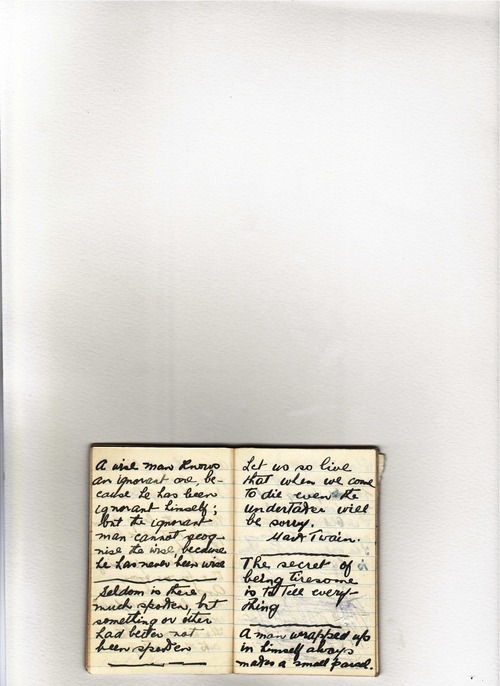 A wise man knows
an ignorant one, be-
cause he has been
ignorant himself;
but the ignorant
man cannot recog-
nise the wise, because
he has never been wise
Seldom is there
much spoken, but
something or other
had better not
been spoken
Let us so live
that when we come
to die even the
undertaker will
be sorry.
Mark Twain.
The secret of
being tiresome
is to tell every-
thing
A man wrapped up
in himself always
makes a small parcel.